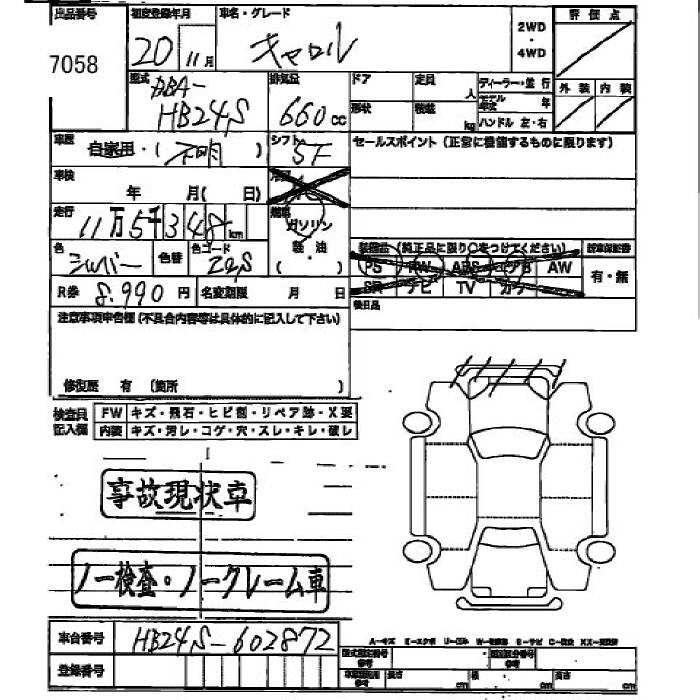 出品番号 初度登録年月 車名・グレード 2WD・4WD 評価点
7058 20 11月 キャロル
型式 DBA-HB24S 排気量 660cc ドア 定員 人 ディーラー・並行 外装 内装
形状 積載 kg モデル年式 年 ハンドル 左・右
車歴 自家用・(不明) シフト 5F セールスポイント(正常に機能するものに限ります)
車検 年 月( 日) 冷房
走行 11万5千348km 燃料 ガソリン
色 シルバー 色替 色コード Z2S 軽油 ・( ) 装備品(純正品に限り○をつけてください) 新車保証書
PS PW ABS エアB AW 有・無
R券 8,990円 名変期限 月 日 SR ナビ TV カワ
注意事項申告欄(不具合内容等は具体的に記入して下さい) 後日品
修復歴 有(箇所 )
検査員記入欄 FW キズ・飛石・ヒビ割・リペア跡・X要
内装 キズ・汚レ・コゲ・穴・スレ・キレ・破レ
事故現状車
ノー検査・ノークレーム車
車台番号 HB24S-602872
登録番号
A-キズ
長さ cm 幅 cm 高さ cm